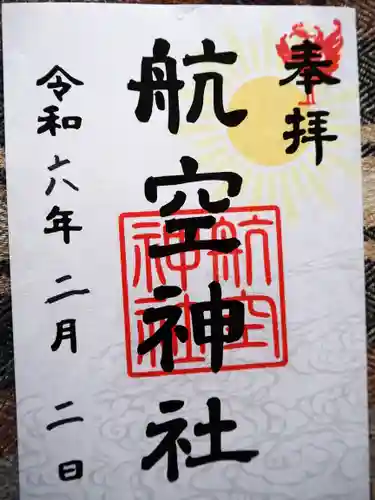 奉拝
航空神社
航空神社
令和六年二月二日